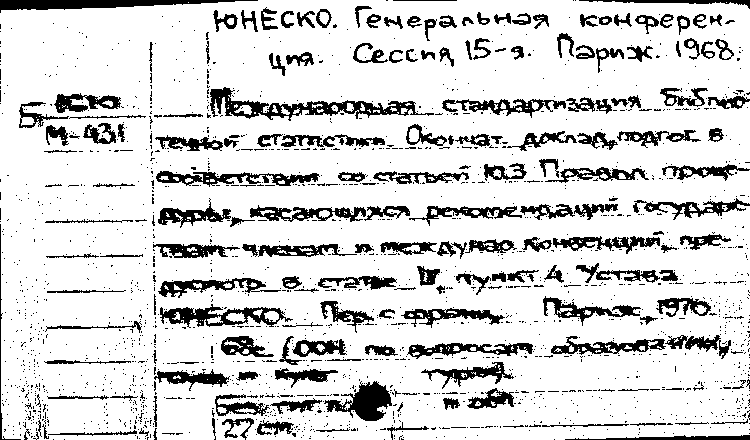 ЮНЕСКО. Генеральная конферен-
ция. Сессия, 15-я. Париж. 1968.
Международная стандартизация библио-
М-431 течной статистики. Окончат. доклад, подгот. в
соответствии со статьей 10.3 Правил проце-
дуры, касающихся рекомендаций государс-
твам-членам и междунар. конвенций, пре-
дусмотр. в статье IV, пункт 4 Устава
ЮНЕСКО. Пер. с франц. Париж, 1970.
68с. (ООН по вопросам образования,
науки и культ туры).
Без тит. л. обл
27 см.